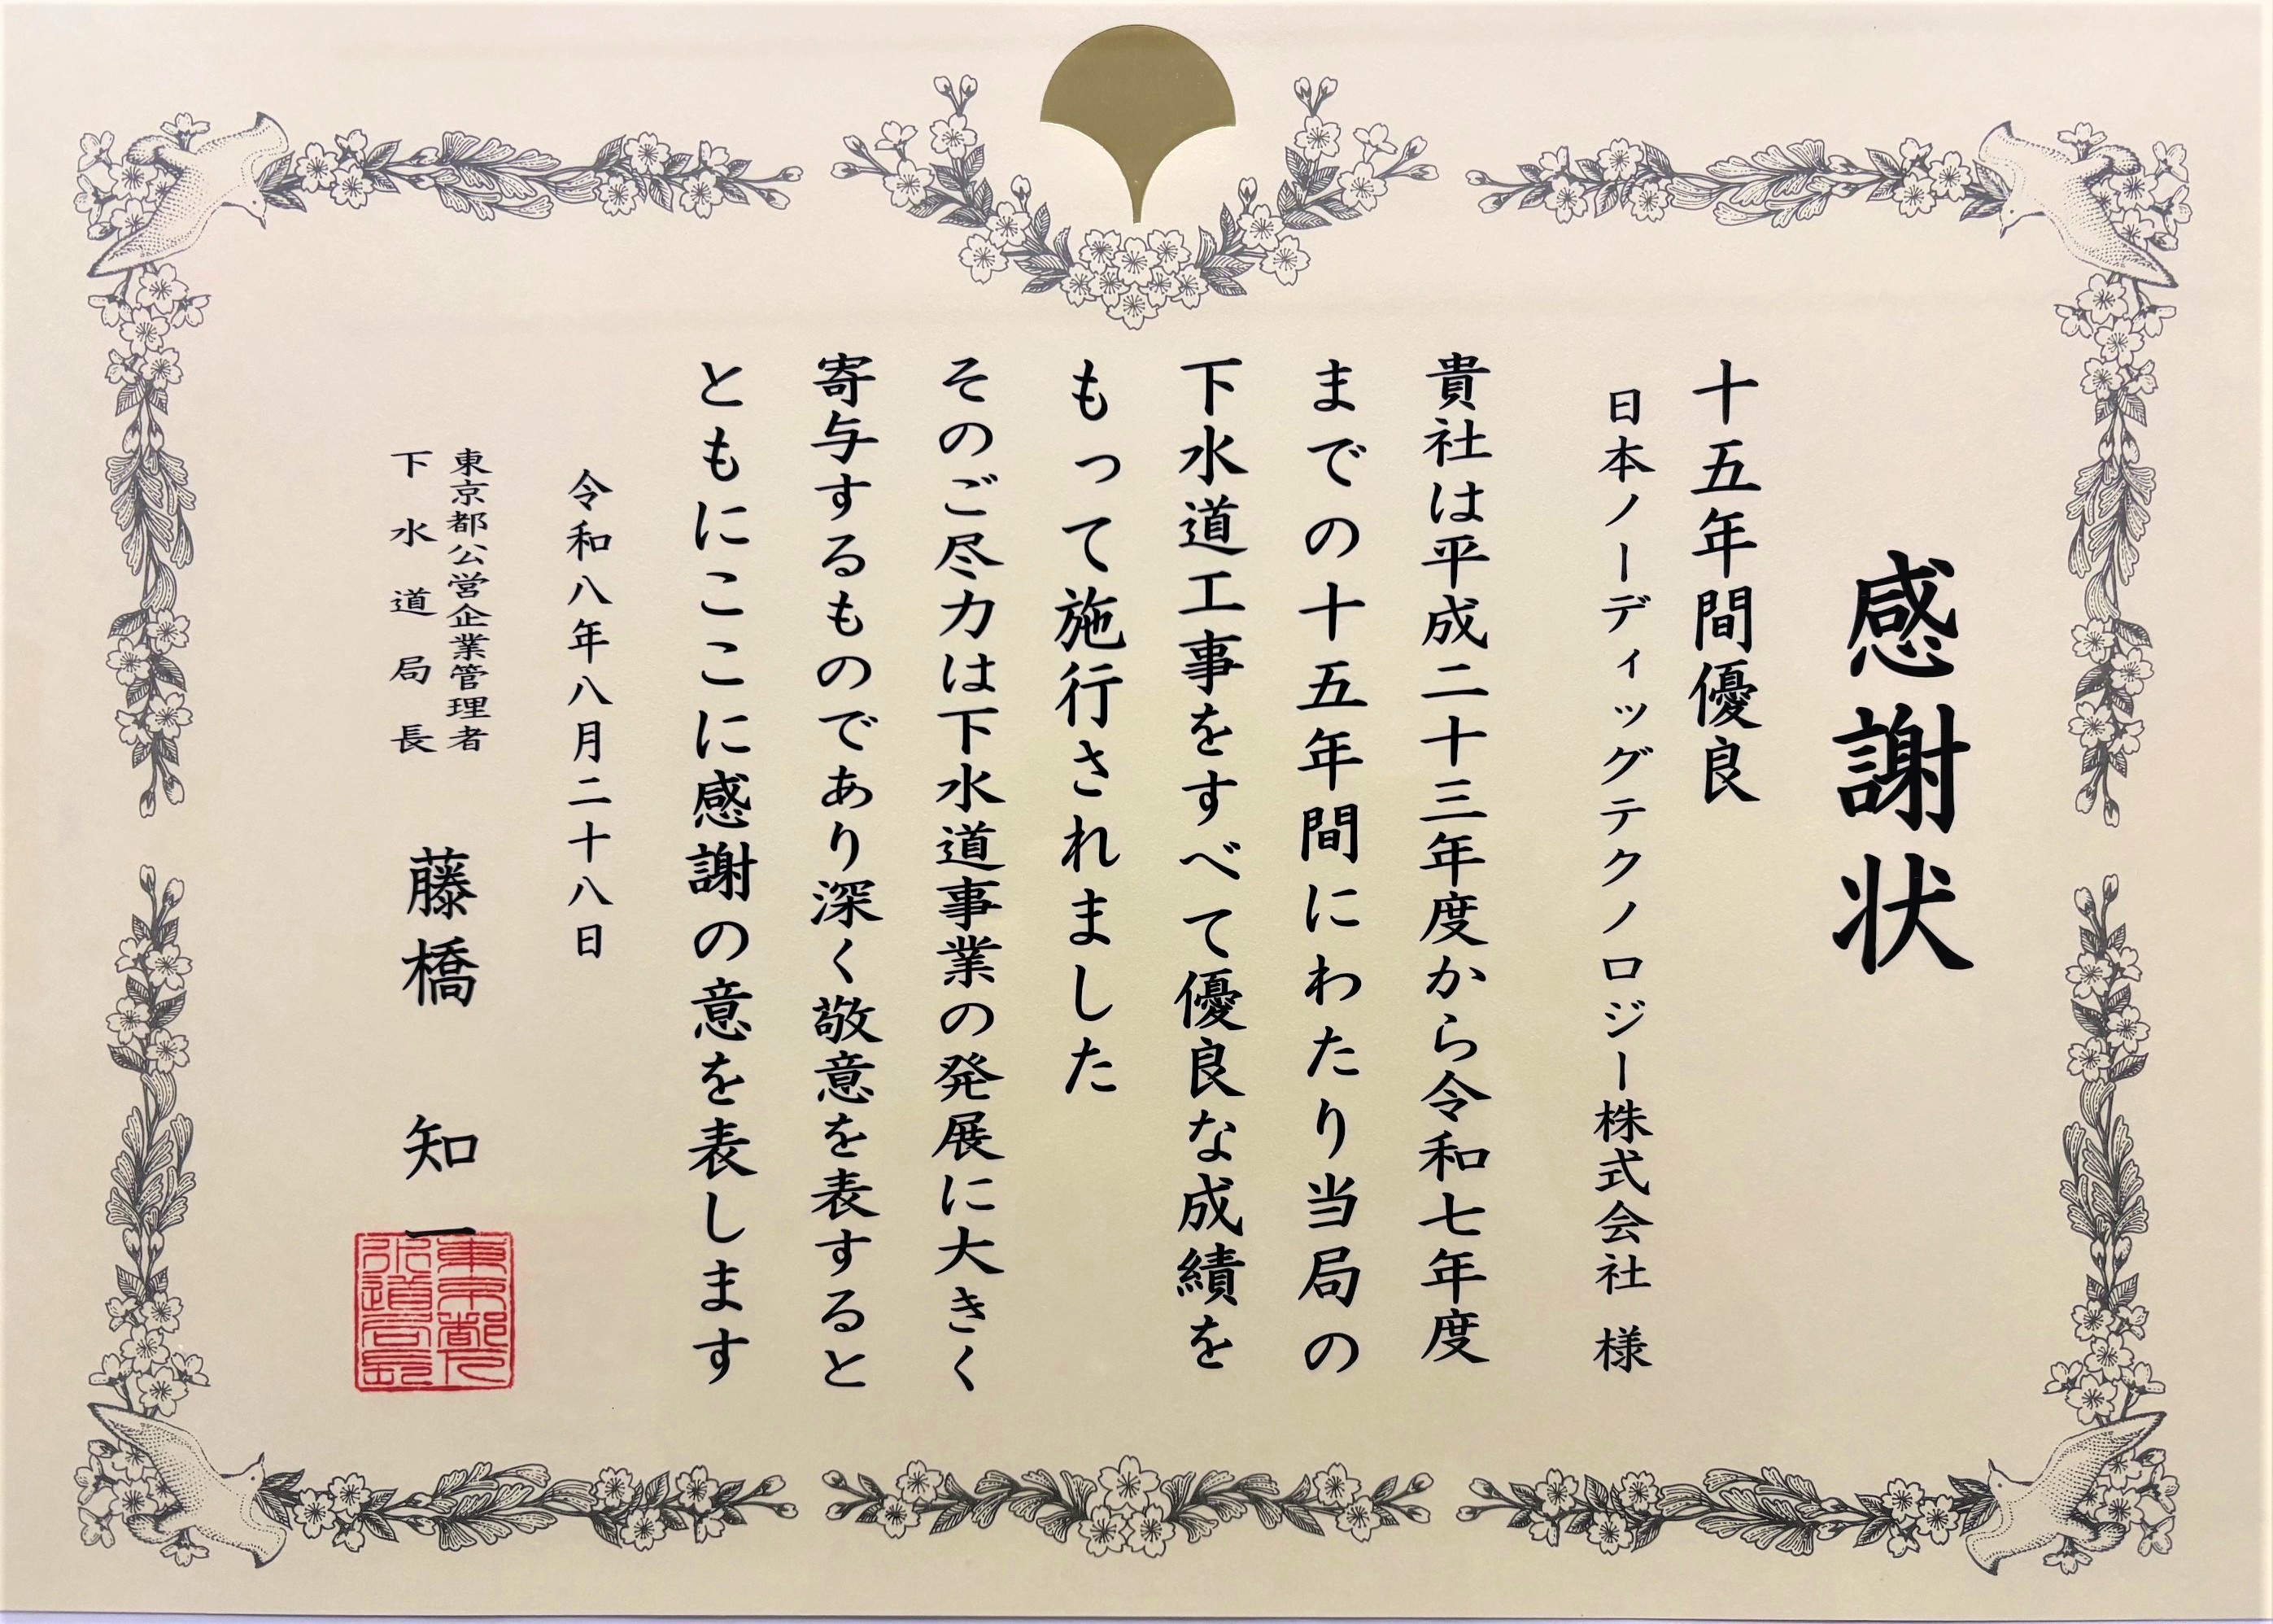 感謝状
十五年間優良
日本ノーディッグテクノロジー株式会社 様
貴社は平成二十三年度から令和七年度
までの十五年間にわたり当局の
下水道工事をすべて優良な成績を
もって施行されました
そのご尽力は下水道事業の発展に大きく
寄与するものであり深く敬意を表すると
ともにここに感謝の意を表します
令和八年八月二十八日
東京都公営企業管理者
下水道局長
藤橋 知一
東京都下
水道局長